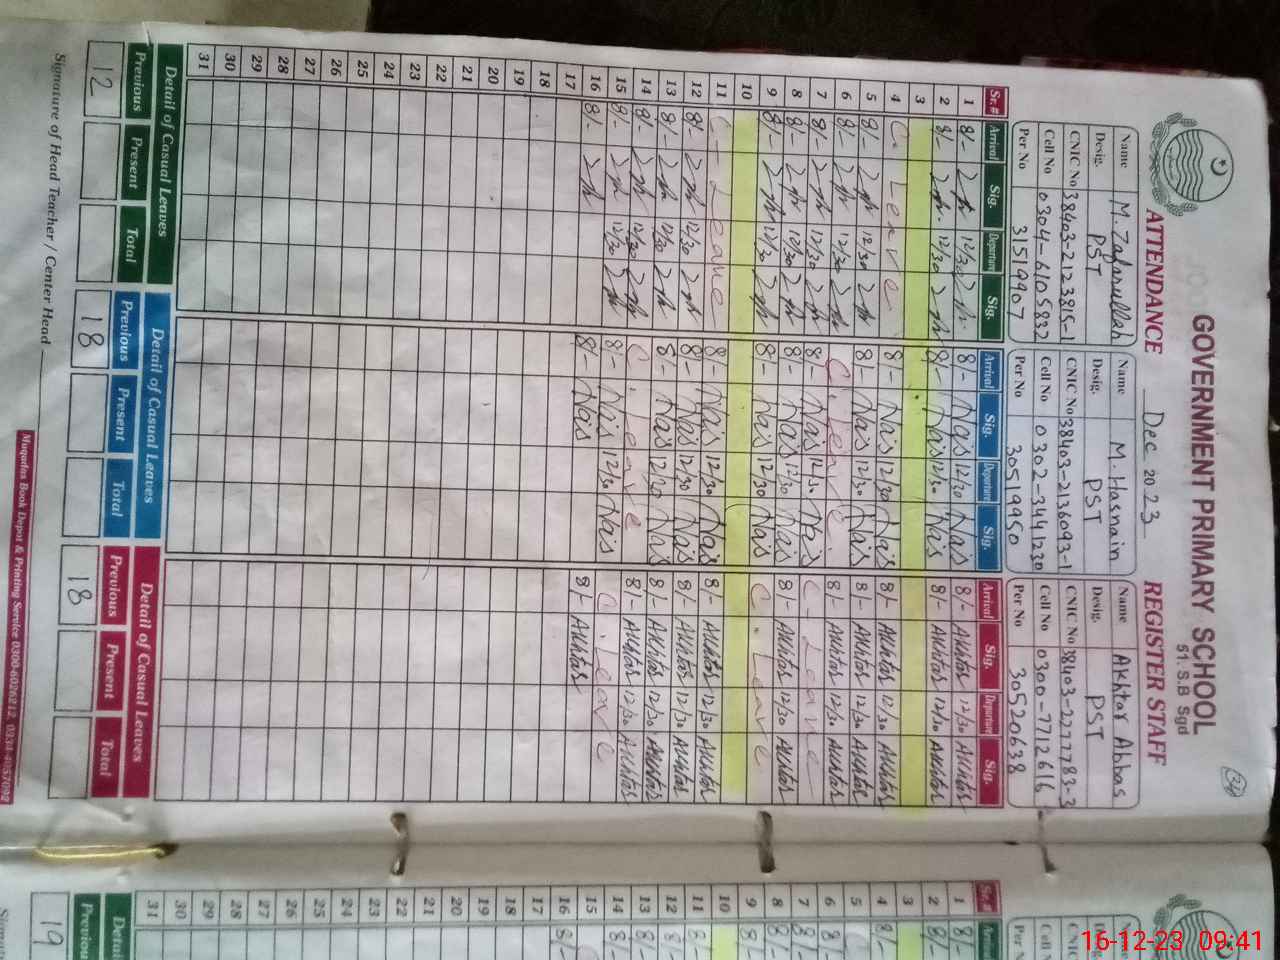 GOVERNMENT PRIMARY SCHOOL
51. S.B Sgd
ATTENDANCE Dec 2023 REGISTER STAFF
Name M. Zafarullah Name M. Hasnain Name Akhtar Abbas
Desig. PST Desig. PST Desig. PST
CNIC No 38403-2123815-1 CNIC No 38403-2136093-1 CNIC No 38403-2277783-3
Cell No 0304-6105832 Cell No 0302-3441230 Cell No 0300-7712616
Per No 31519907 Per No 30519950 Per No 30520638
Sr.# Arrival Sig. Departure Sig. Arrival Sig. Departure Sig. Arrival Sig. Departure Sig.
1 8/- 12/30 8/- Has 12/30 Has 8/- Akhtar 12/30 Akhtar
2 8/- 12/30 8/- Has 12/30 Has 8/- Akhtar 12/30 Akhtar
3
4 C. Leave 8/- Has 12/30 Has 8/- Akhtar 12/30 Akhtar
5 8/- 12/30 8/- Has 12/30 Has 8/- Akhtar 12/30 Akhtar
6 8/- 12/30 C. Leave 8/- Akhtar 12/30 Akhtar
7 8/- 12/30 8/- Has 12/30 Has C. Leave
8 8/- 12/30 8/- Has 12/30 Has 8/- Akhtar 12/30 Akhtar
9 8/- 12/30 8/- Has 12/30 Has C. Leave
10
11 C- Leave 8/- Has 12/30 Has 8/- Akhtar 12/30 Akhtar
12 8/- 12/30 8/- Has 12/30 Has 8/- Akhtar 12/30 Akhtar
13 8/- 12/30 8/- Has 12/30 Has 8/- Akhtar 12/30 Akhtar
14 8/- 12/30 C. Leave 8/- Akhtar 12/30 Akhtar
15 8/- 12/30 8/- Has 12/30 Has C. Leave
16 8/- 8/- Has 8/- Akhtar
17
18
19
20
21
22
23
24
25
26
27
28
29
30
31
Detail of Casual Leaves Detail of Casual Leaves Detail of Casual Leaves
Previous Present Total Previous Present Total Previous Present Total
12 18 18
Signature of Head Teacher / Center Head
Muqadas Book Depot & Printing Service 0300-6026212, 0334-4057092
Name
Desig.
CNIC No
Cell No
Per No
Sr.# Arrival
1 8/-
2 8/-
3
4 8/-
5
6 8/-
7 8/-
8 8/-
9 8/-
10
11 8/-
12 8/-
13 8/-
14 8/-
15
16 8/-
17
18
19
20
21
22
23
24
25
26
27
28
29
30
31
Previous
19
16-12-23 09:41